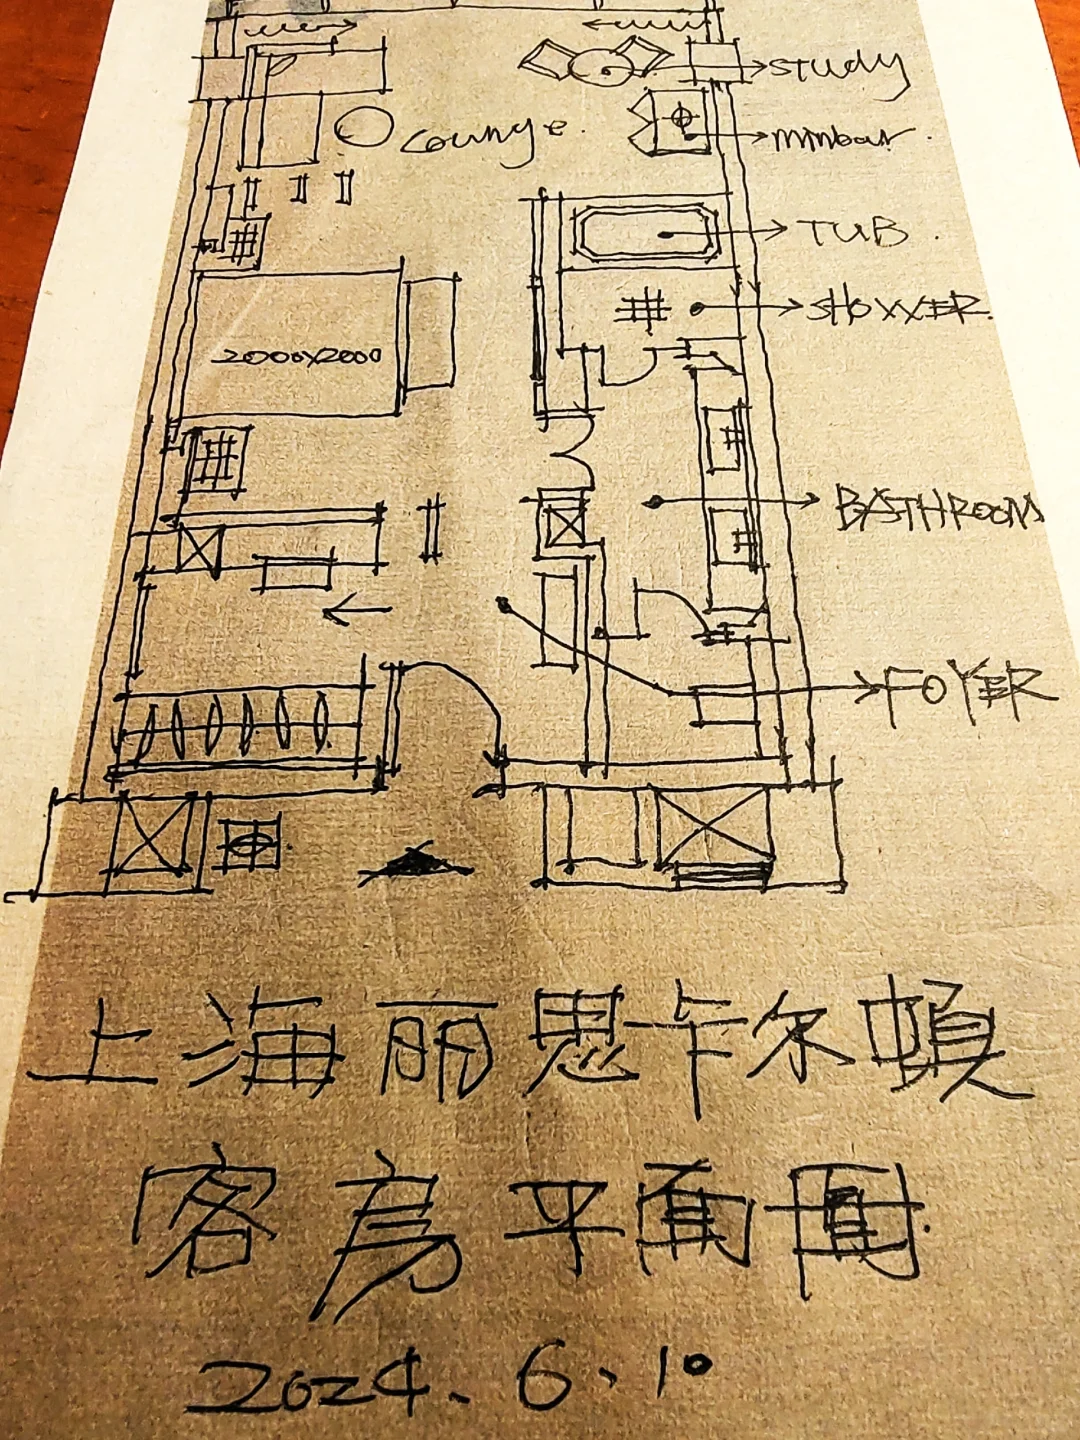 study
Lounge.
minbar.
TUB.
SHOWER.
2000X2000
BATHROOM
FOYER
上海丽思卡尔頓
客房平面圖.
2024、6、10